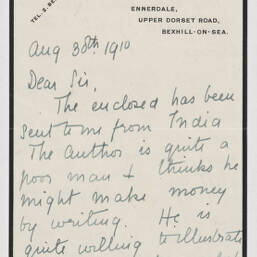 ENNERDALE,
UPPER DORSET ROAD,
BEXHILL-ON-SEA.
Aug 30th 1910
Dear Sir,
The enclosed has been
sent to me from India
The author is quite a
poor man & thinks he
might make money
by writing. He is
quite willing to illustrate